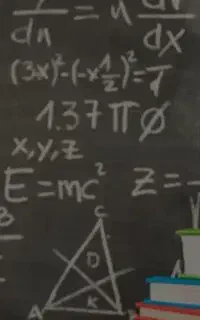 dn = u dx
(3x)²-(-x½)²=T
1.37 π ø
x,y,z
E=mc² Z=-
C
D
K
A